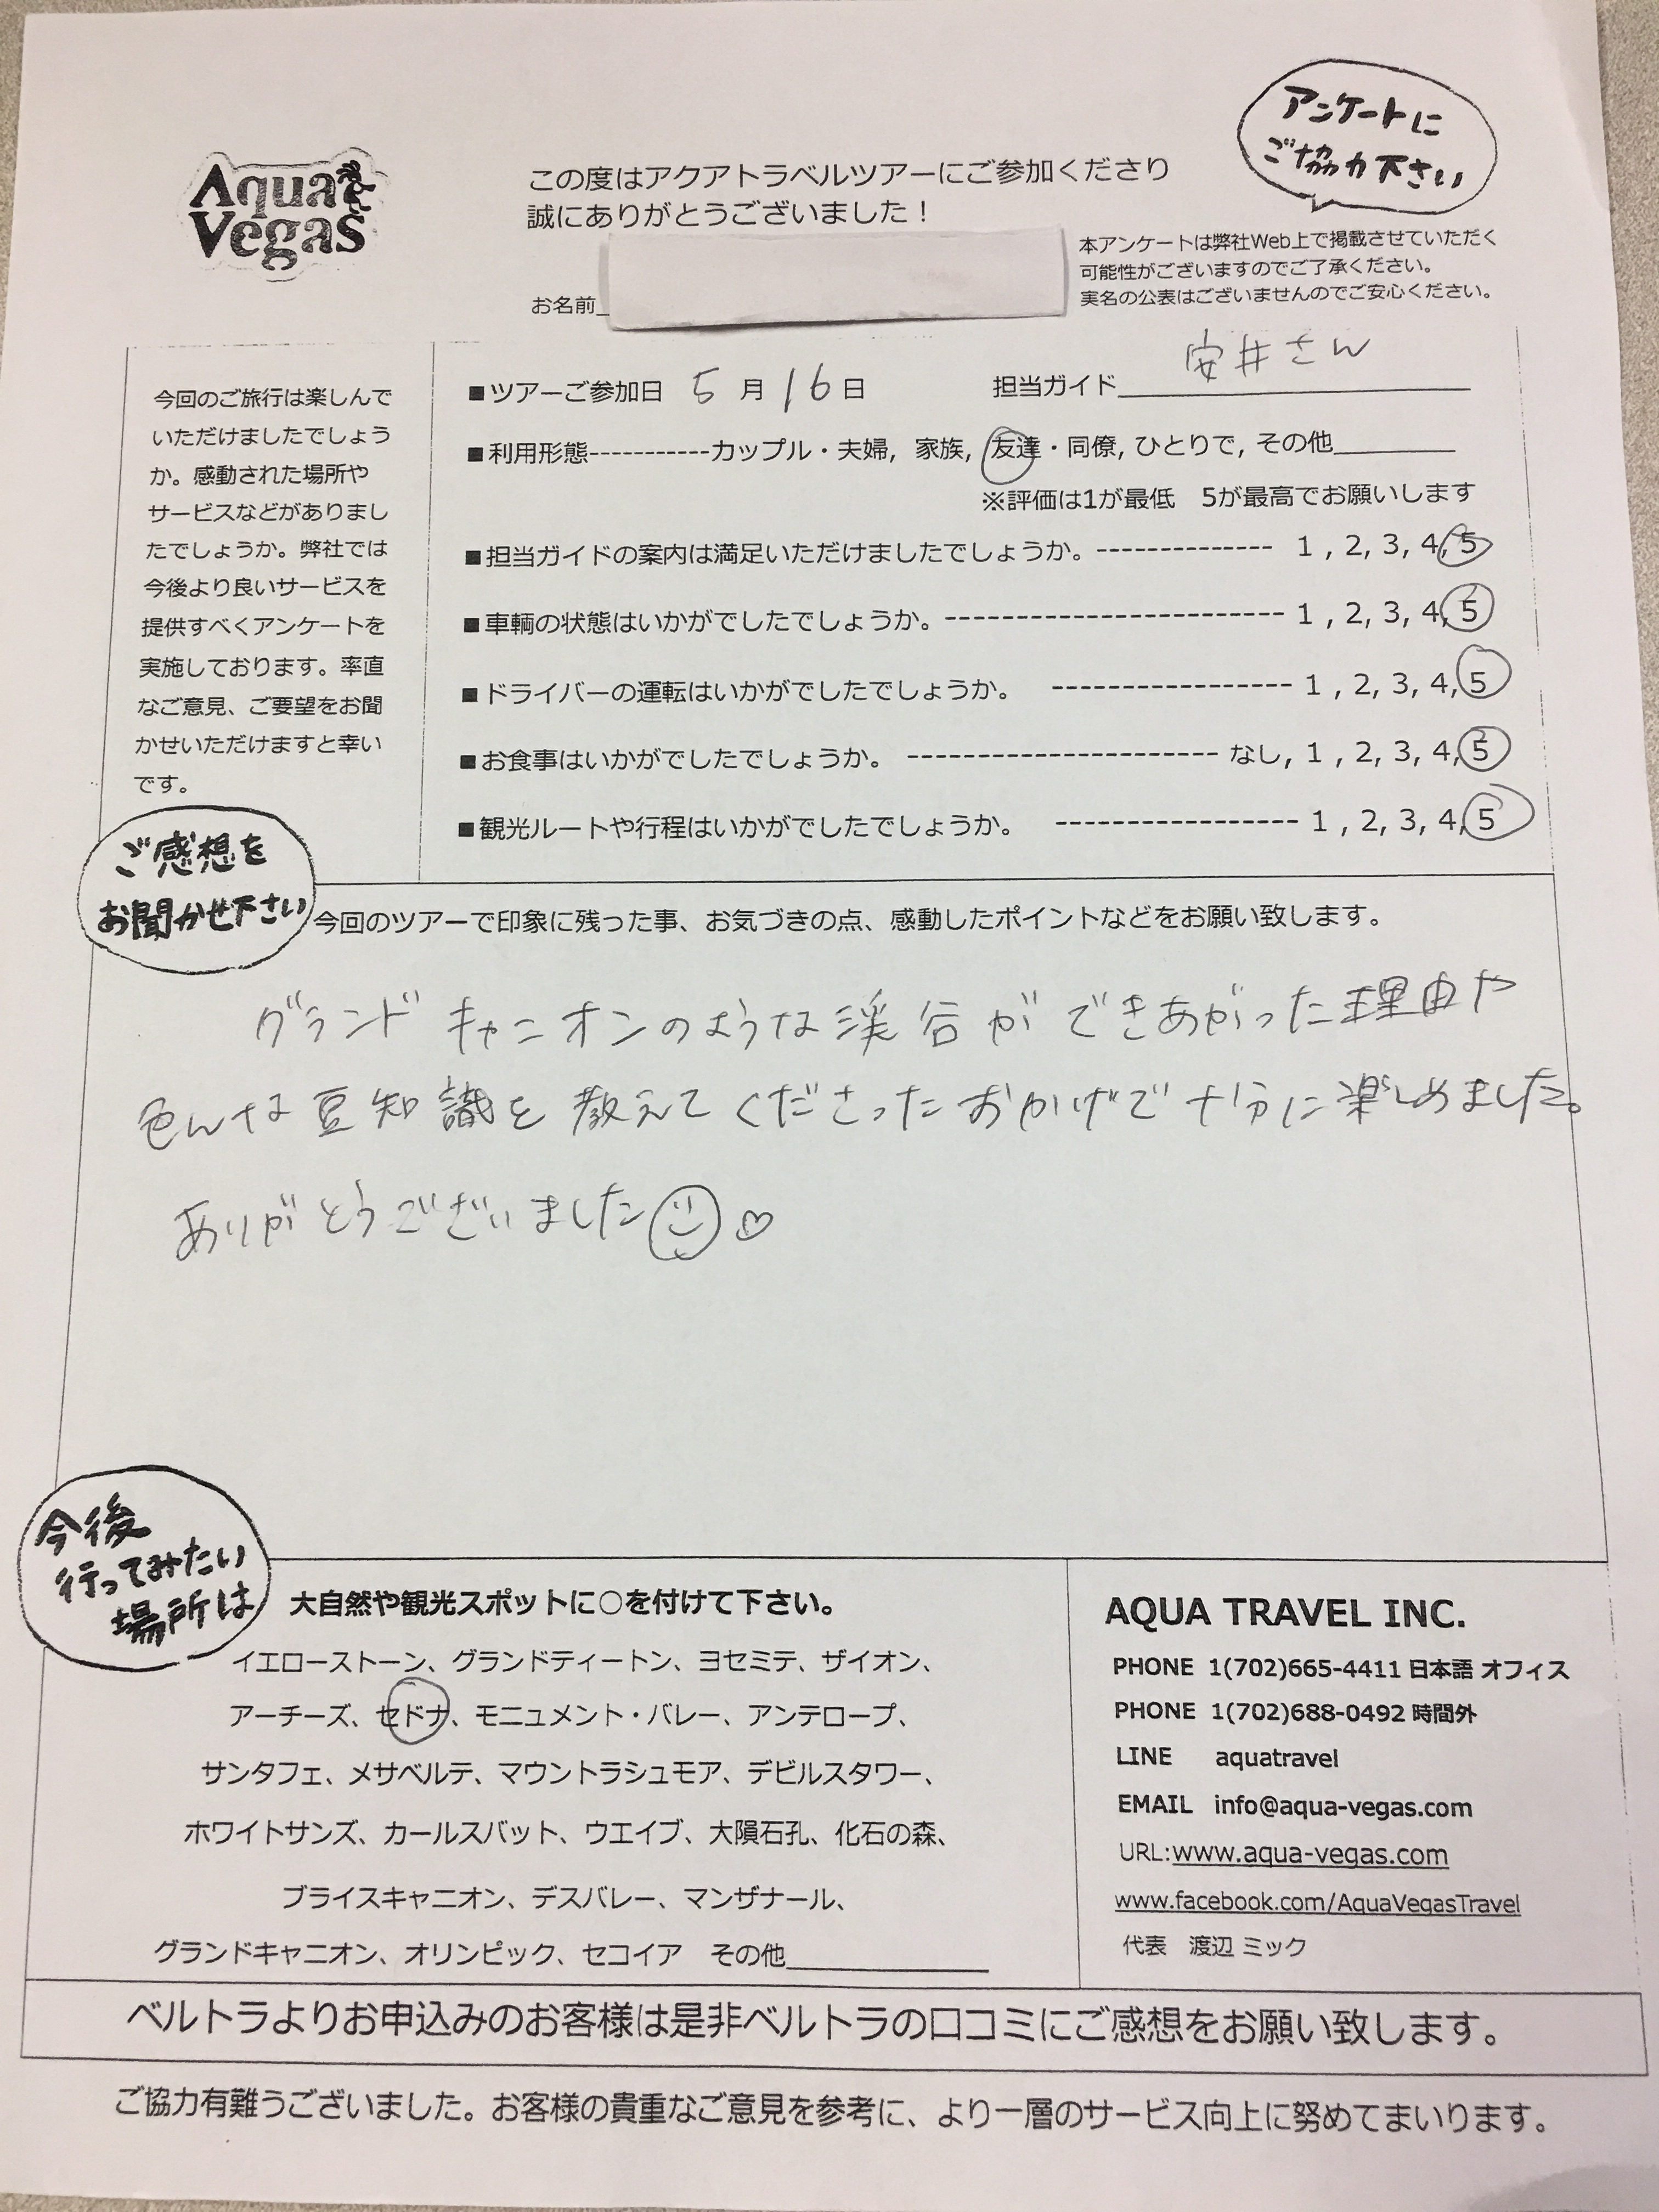 アンケートに
ご協力下さい
Aqua
Vegas
この度はアクアトラベルツアーにご参加くださり
誠にありがとうございました！
本アンケートは弊社Web上で掲載させていただく
可能性がございますのでご了承ください。
実名の公表はございませんのでご安心ください。
お名前
今回のご旅行は楽しんで
いただけましたでしょう
か。感動された場所や
サービスなどがありまし
たでしょうか。弊社では
今後より良いサービスを
提供すべくアンケートを
実施しております。率直
なご意見、ご要望をお聞
かせいただけますと幸い
です。
■ツアーご参加日 5月16日 担当ガイド 安井さん
■利用形態-----------カップル・夫婦, 家族, 友達・同僚, ひとりで, その他________
※評価は1が最低 5が最高でお願いします
■担当ガイドの案内は満足いただけましたでしょうか。-------------- 1 , 2, 3, 4, 5
■車輌の状態はいかがでしたでしょうか。--------------------------- 1 , 2, 3, 4, 5
■ドライバーの運転はいかがでしたでしょうか。 ------------------- 1 , 2, 3, 4, 5
■お食事はいかがでしたでしょうか。 ----------------------- なし, 1 , 2, 3, 4, 5
■観光ルートや行程はいかがでしたでしょうか。 ------------------- 1 , 2, 3, 4, 5
ご感想を
お聞かせ下さい
今回のツアーで印象に残った事、お気づきの点、感動したポイントなどをお願い致します。
グランドキャニオンのような渓谷ができあがった理由や
色んな豆知識を教えてくださったおかげで十分に楽しめました。
ありがとうございました☺♡
今後
行ってみたい
場所は
大自然や観光スポットに○を付けて下さい。
イエローストーン、グランドティートン、ヨセミテ、ザイオン、
アーチーズ、セドナ、モニュメント・バレー、アンテロープ、
サンタフェ、メサベルテ、マウントラシュモア、デビルスタワー、
ホワイトサンズ、カールスバット、ウエイブ、大隕石孔、化石の森、
ブライスキャニオン、デスバレー、マンザナール、
グランドキャニオン、オリンピック、セコイア その他______________
AQUA TRAVEL INC.
PHONE 1(702)665-4411 日本語 オフィス
PHONE 1(702)688-0492 時間外
LINE aquatravel
EMAIL info@aqua-vegas.com
URL:www.aqua-vegas.com
www.facebook.com/AquaVegasTravel
代表 渡辺 ミック
ベルトラよりお申込みのお客様は是非ベルトラの口コミにご感想をお願い致します。
ご協力有難うございました。お客様の貴重なご意見を参考に、より一層のサービス向上に努めてまいります。